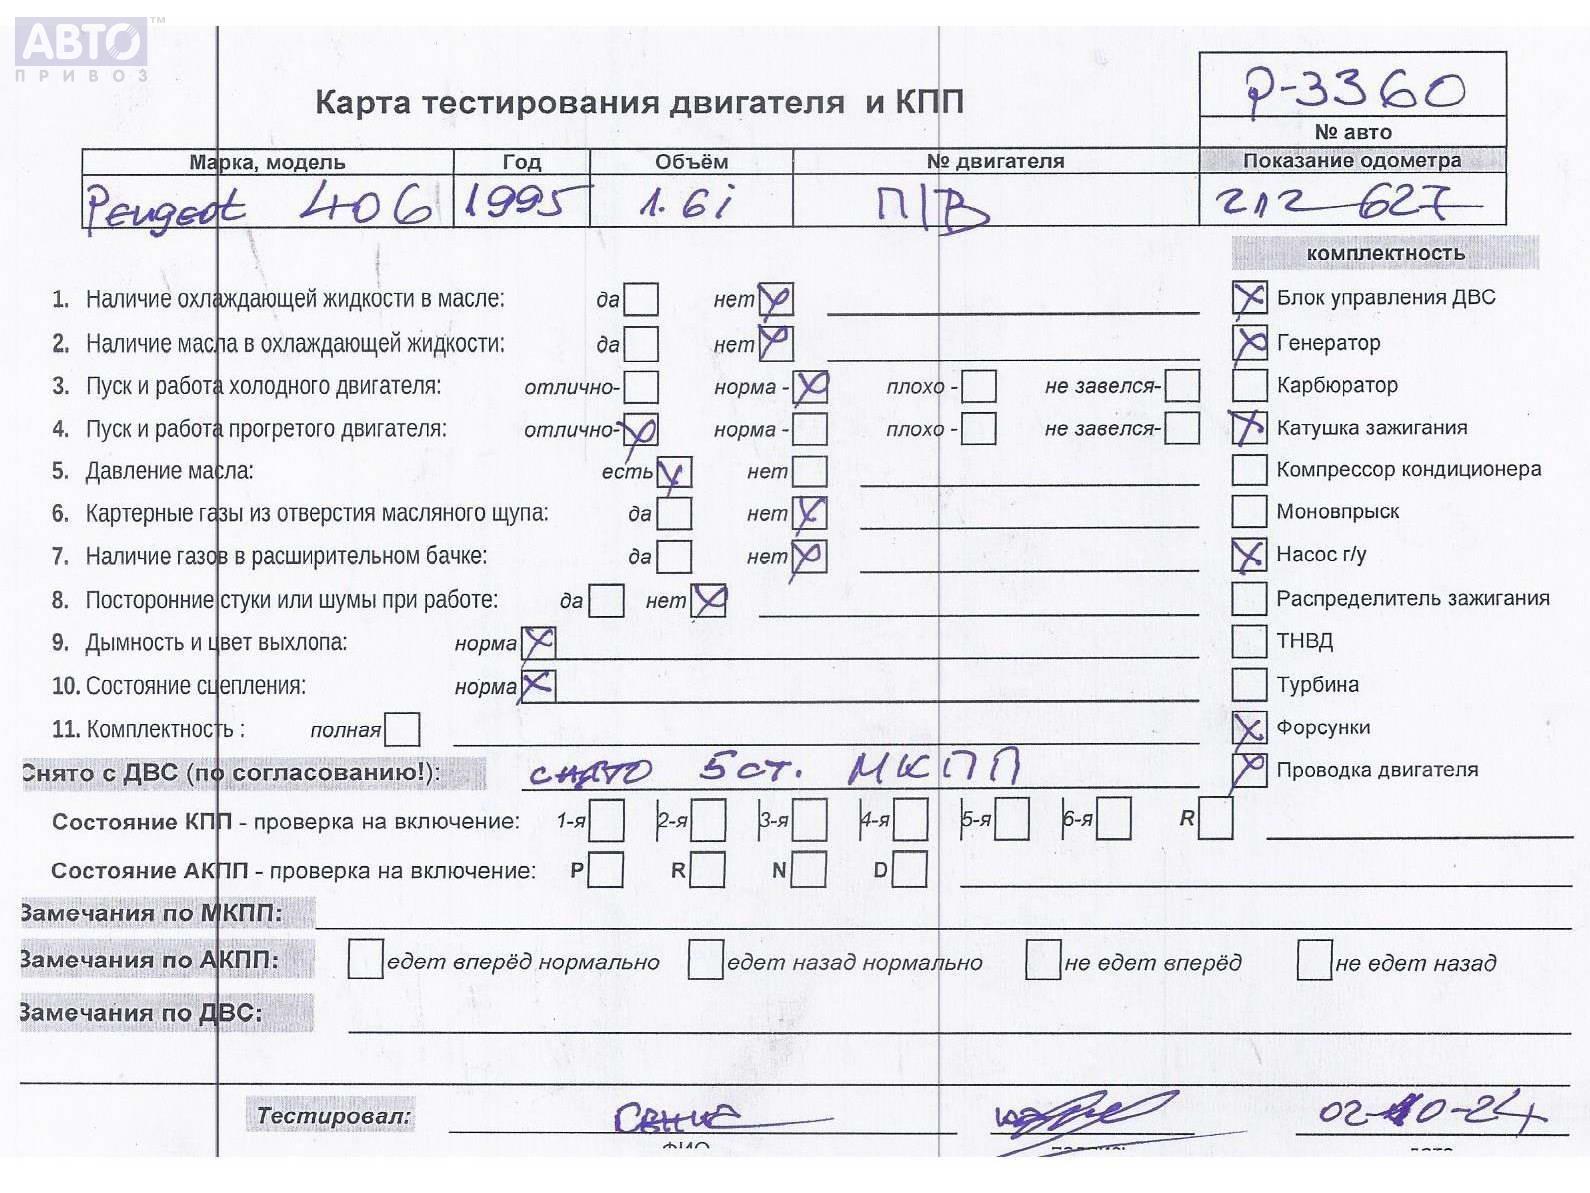 АВТО™
ПРИВОЗ
Карта тестирования двигателя и КПП
P-3360
№ авто
Марка, модель Год Объём № двигателя Показание одометра
Peugeot 406 1995 1.6i П/В 212 627
комплектность
1. Наличие охлаждающей жидкости в масле: да нет Блок управления ДВС
2. Наличие масла в охлаждающей жидкости: да нет Генератор
3. Пуск и работа холодного двигателя: отлично- норма - плохо - не завелся- Карбюратор
4. Пуск и работа прогретого двигателя: отлично- норма - плохо - не завелся- Катушка зажигания
5. Давление масла: есть нет Компрессор кондиционера
6. Картерные газы из отверстия масляного щупа: да нет Моновпрыск
7. Наличие газов в расширительном бачке: да нет Насос г/у
8. Посторонние стуки или шумы при работе: да нет Распределитель зажигания
9. Дымность и цвет выхлопа: норма ТНВД
10. Состояние сцепления: норма Турбина
11. Комплектность : полная Форсунки
Снято с ДВС (по согласованию!): снято 5ст. МКПП Проводка двигателя
Состояние КПП - проверка на включение: 1-я 2-я 3-я 4-я 5-я 6-я R
Состояние АКПП - проверка на включение: P R N D
Замечания по МКПП:
Замечания по АКПП: едет вперёд нормально едет назад нормально не едет вперёд не едет назад
Замечания по ДВС:
Тестировал: 02-10-24
ФИО подпись дата